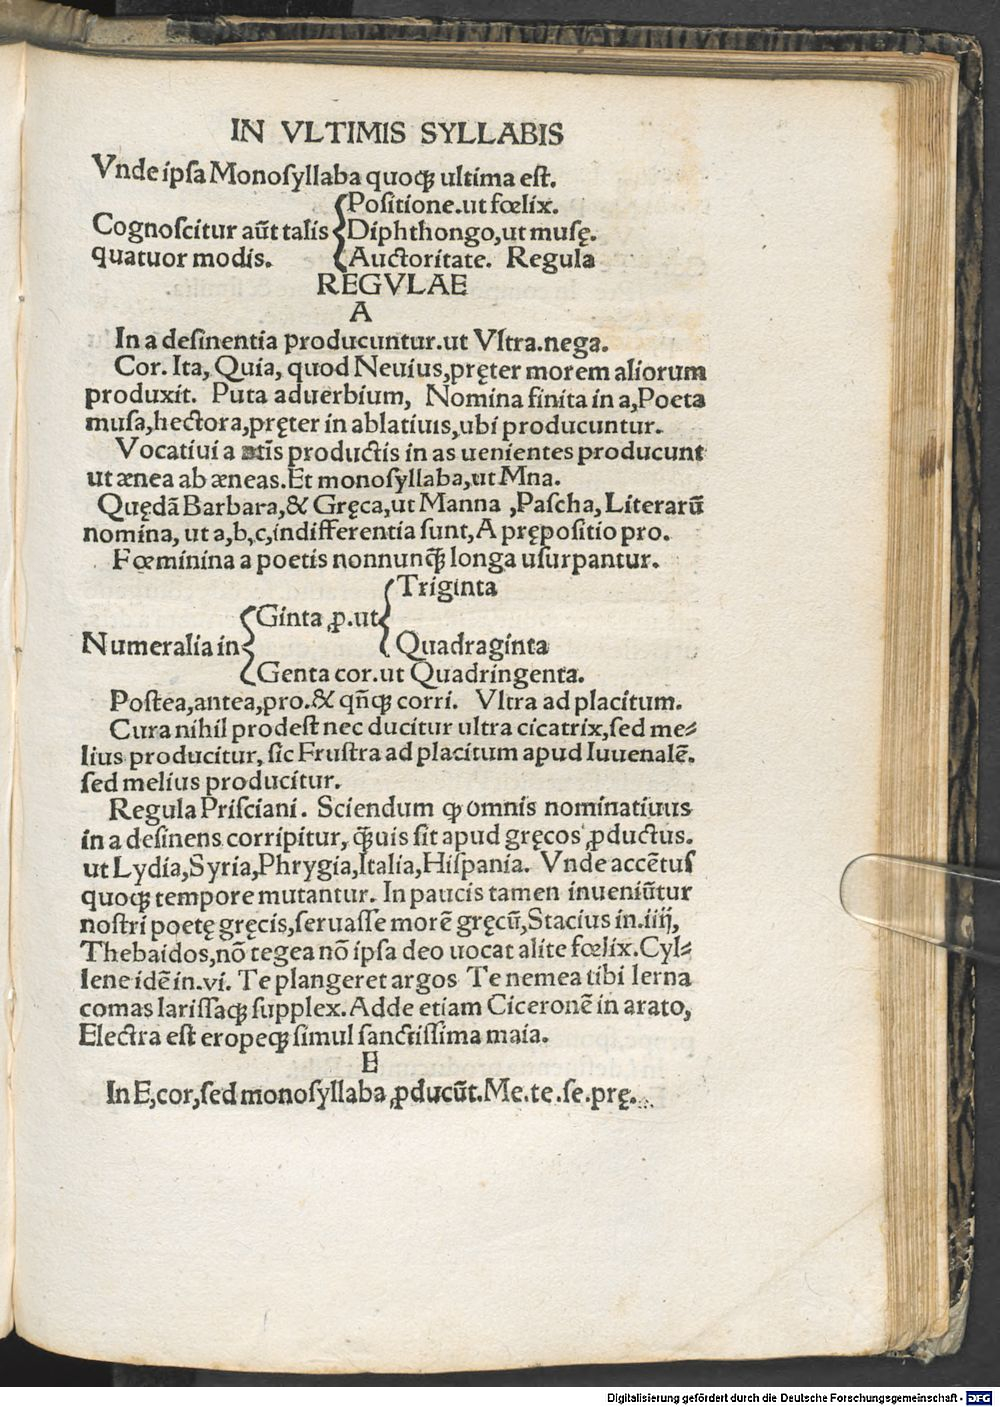 IN VLTIMIS SYLLABIS
Vnde ipſa Monoſyllaba quoqꝫ ultima eſt.
Poſitione.ut fœlix.
Cognoſcitur aūt talis Diphthongo,ut muſę.
quatuor modis. Auctoritate. Regula
REGVLAE
A
In a deſinentia producuntur.ut Vltra.nega.
Cor. Ita, Quia, quod Neuius,pręter morem aliorum
produxit. Puta aduerbium, Nomina finita in a,Poeta
muſa,hectora,pręter in ablatiuis,ubi producuntur.
Vocatiui a tīs productis in as uenientes producunt
ut ænea ab æneas.Et monoſyllaba,ut Mna.
Quędā Barbara,& Gręca,ut Manna ,Paſcha, Literarū
nomina, ut a,b,c,indifferentia ſunt,A prępoſitio pro.
Fœminina a poetis nonnunꝙ̄ longa uſurpantur.
Triginta
Ginta ꝓ.ut
Numeralia in Quadraginta
Genta cor.ut Quadringenta.
Poſtea,antea,pro.& qn̄qꝫ corri. Vltra ad placitum.
Cura nihil prodeſt nec ducitur ultra cicatrix,ſed me⸗
lius producitur, ſic Fruſtra ad placitum apud Iuuenalē.
ſed melius producitur.
Regula Priſciani. Sciendum ꝙ omnis nominatiuus
in a deſinens corripitur, ꝙ̄uis ſit apud gręcos ꝓductus.
ut Lydia,Syria,Phrygia,Italia,Hiſpania. Vnde accētus
quoqꝫ tempore mutantur. In paucis tamen inueniūtur
noſtri poetę gręcis,ſeruaſſe morē gręcū,Stacius in.iiij,
Thebaidos,nō tegea nō ipſa deo uocat alite fœlix.Cyl⸗
lene idē in.vi. Te plangeret argos Te nemea tibi lerna
comas lariſſaqꝫ ſupplex.Adde etiam Ciceronē in arato,
Electra eſt eropeqꝫ ſimul ſanctiſſima maia.
E
In E,cor,ſed monoſyllaba ꝓducūt.Me.te.ſe.prę.
Digitalisierung gefördert durch die Deutsche Forschungsgemeinschaft - DFG